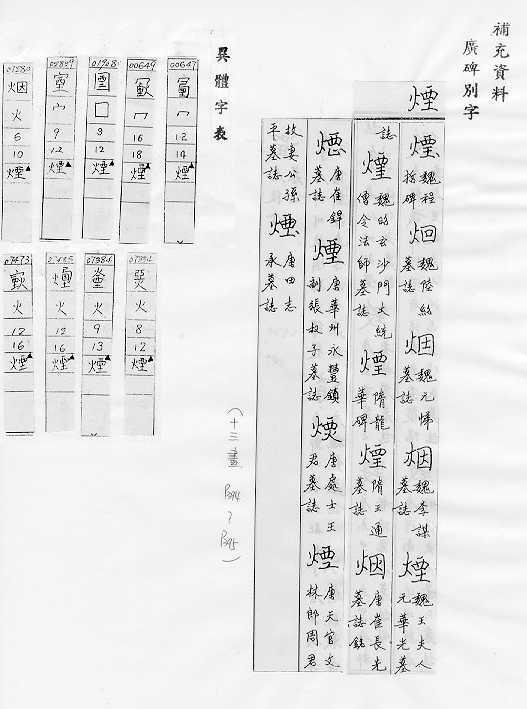 補充資料
廣碑別字
煙
煙 魏程哲碑
烟 魏元悌墓誌
烟 魏李謀墓誌
煙 魏王夫人元華光墓誌
煙 魏昭玄沙門大統僧令法師墓誌
煙 隋龍華碑
煙 隋王通墓誌
烟 唐崔長先墓誌銘
唐崔銲墓誌
煙 唐華州永豐鎮副張叔子墓誌
唐處士王君墓誌
煙 唐天官文林郎周君故妻公孫平墓誌
唐田志承墓誌
異體字表
00647
冖
12
14
煙
00649
冖
16
18
煙
01928
囗
9
12
煙
宀
9
12
煙
烟
火
6
10
煙
火
8
12
煙
火
9
13
煙
火
12
16
煙
07473
火
12
16
煙
(十三畫 P.394 ~ P.395)